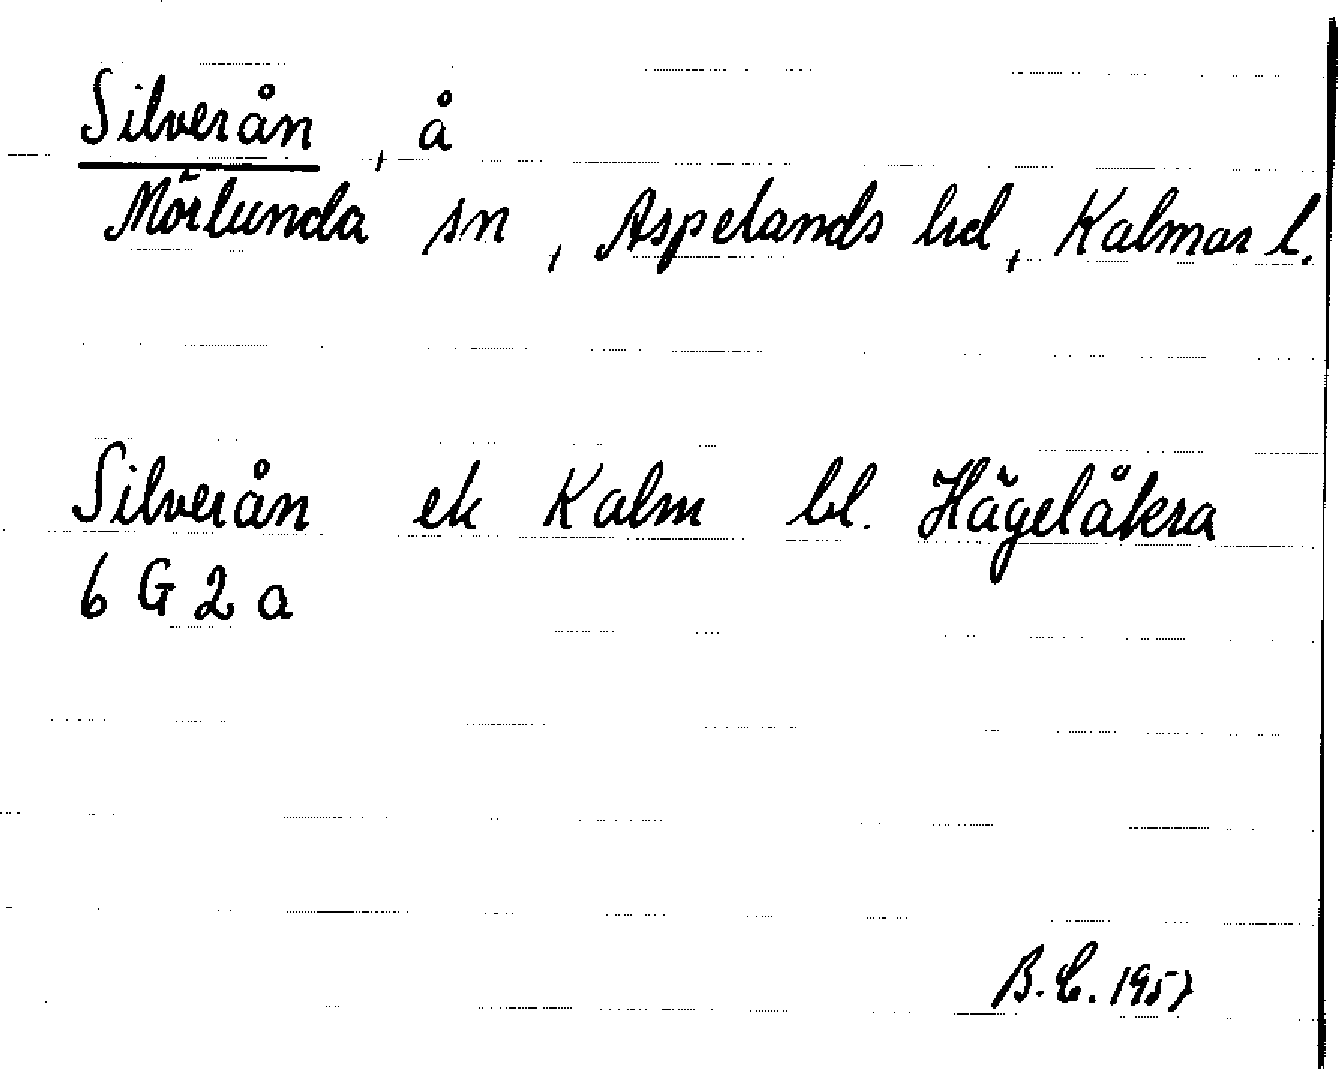 Silverån, å
Mörlunda sn, Aspelands hd, Kalmar l.
Silverån ek Kalm bl. Hägelåkra
6 G 2 a
B.C. 1957